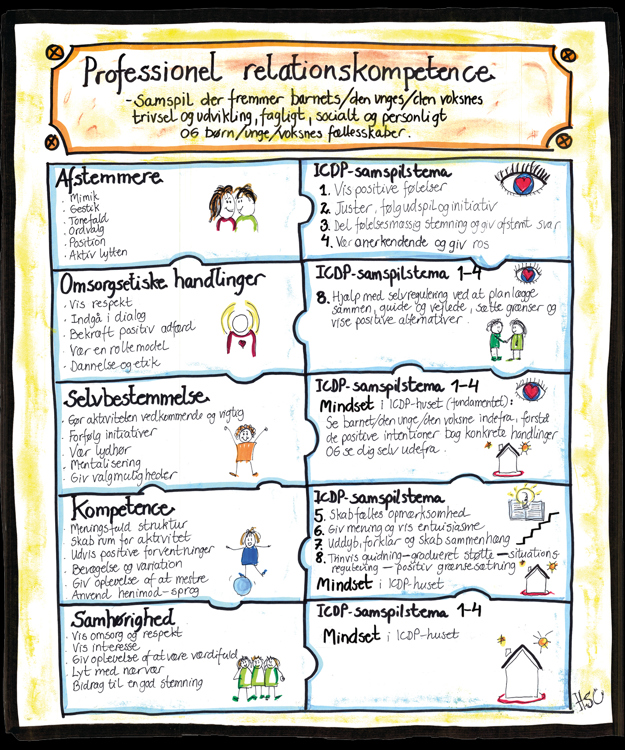 Professionel relationskompetence
-Samspil der fremmer barnets/den unges/den voksnes
trivsel og udvikling, fagligt, socialt og personligt
og børn/unge/voksnes fællesskaber.
Afstemmere
· Mimik
· Gestik
· Tonefald
· Ordvalg
· Position
· Aktiv lytten
ICDP-samspilstema
1. Vis positive følelser
2. Juster, følg udspil og initiativ
3. Del følelsesmæssig stemning og giv afstemt svar
4. Vær anerkendende og giv ros
Omsorgsetiske handlinger
· Vis respekt
· Indgå i dialog
· Bekræft positiv adfærd
· Vær en rollemodel
· Dannelse og etik
ICDP-samspilstema 1-4
8. Hjælp med selvregulering ved at planlægge
sammen, guide og vejlede, sætte grænser og
vise positive alternativer.
Selvbestemmelse
· Gør aktiviteten vedkommende og vigtig
· Forfølg initiativer
· Vær lydhør
· Mentalisering
· Giv valgmuligheder
ICDP-samspilstema 1-4
Mindset i ICDP-huset (fundamentet):
Se barnet/den unge/den voksne indefra, forstå
de positive intentioner bag konkrete handlinger
og se dig selv udefra.
Kompetence
· Meningsfuld struktur
· Skab rum for aktivitet
· Udvis positive forventninger
· Bevægelse og variation
· Giv oplevelse af at mestre
· Anvend henimod-sprog
ICDP-samspilstema
5. Skab fælles opmærksomhed
6. Giv mening og vis entusiasme
7. Uddyb, forklar og skab sammenhæng
8. Trinvis guidning-gradueret støtte - situations-
regulering - positiv grænsesætning
Mindset i ICDP-huset
Samhørighed
· Vis omsorg og respekt
· Vis interesse
· Giv oplevelse af at være værdifuld
· Lyt med nærvær
· Bidrag til en god stemning
ICDP-samspilstema 1-4
Mindset i ICDP-huset
HSC